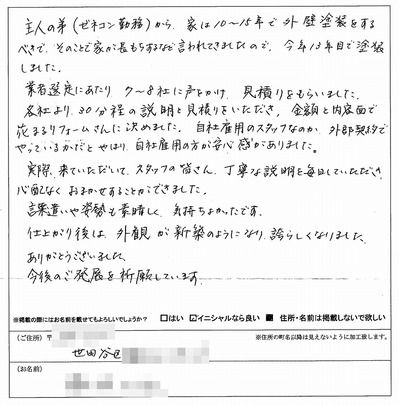 主人の弟(ゼネコン勤務)から、家は10〜15年で外壁塗装をする
べきで、そのことで家が長もちするなど言われてきましたので、今年13年目で塗装
しました。
業者選定にあたり、7〜8社に声をかけ、見積りをもらいました。
各社より、30分程の説明と見積りをいただき、金額と内容面で
花まるリフォームさんに決めました。自社雇用のスタッフなのか、外部契約で
やっているかだとやはり、自社雇用の方が安心感がありました。
実際、来ていただいて、スタッフの皆さん、丁寧な説明を毎日していただき
心配なくおまかせすることができました。
言葉遣いや姿勢も素晴しく、気持ちよかったです。
仕上がり後は、外観が新築のようになり、誇らしくなりました。
ありがとうございました。
今後のご発展を祈願しています。
※掲載の際にはお名前を載せてもよろしいでしょうか? □はい ☑イニシャルなら良い ■ 住所・名前は掲載しないで欲しい
(ご住所) 〒 ※住所の町名以降は見えないように加工致します。
世田谷区
(お名前)